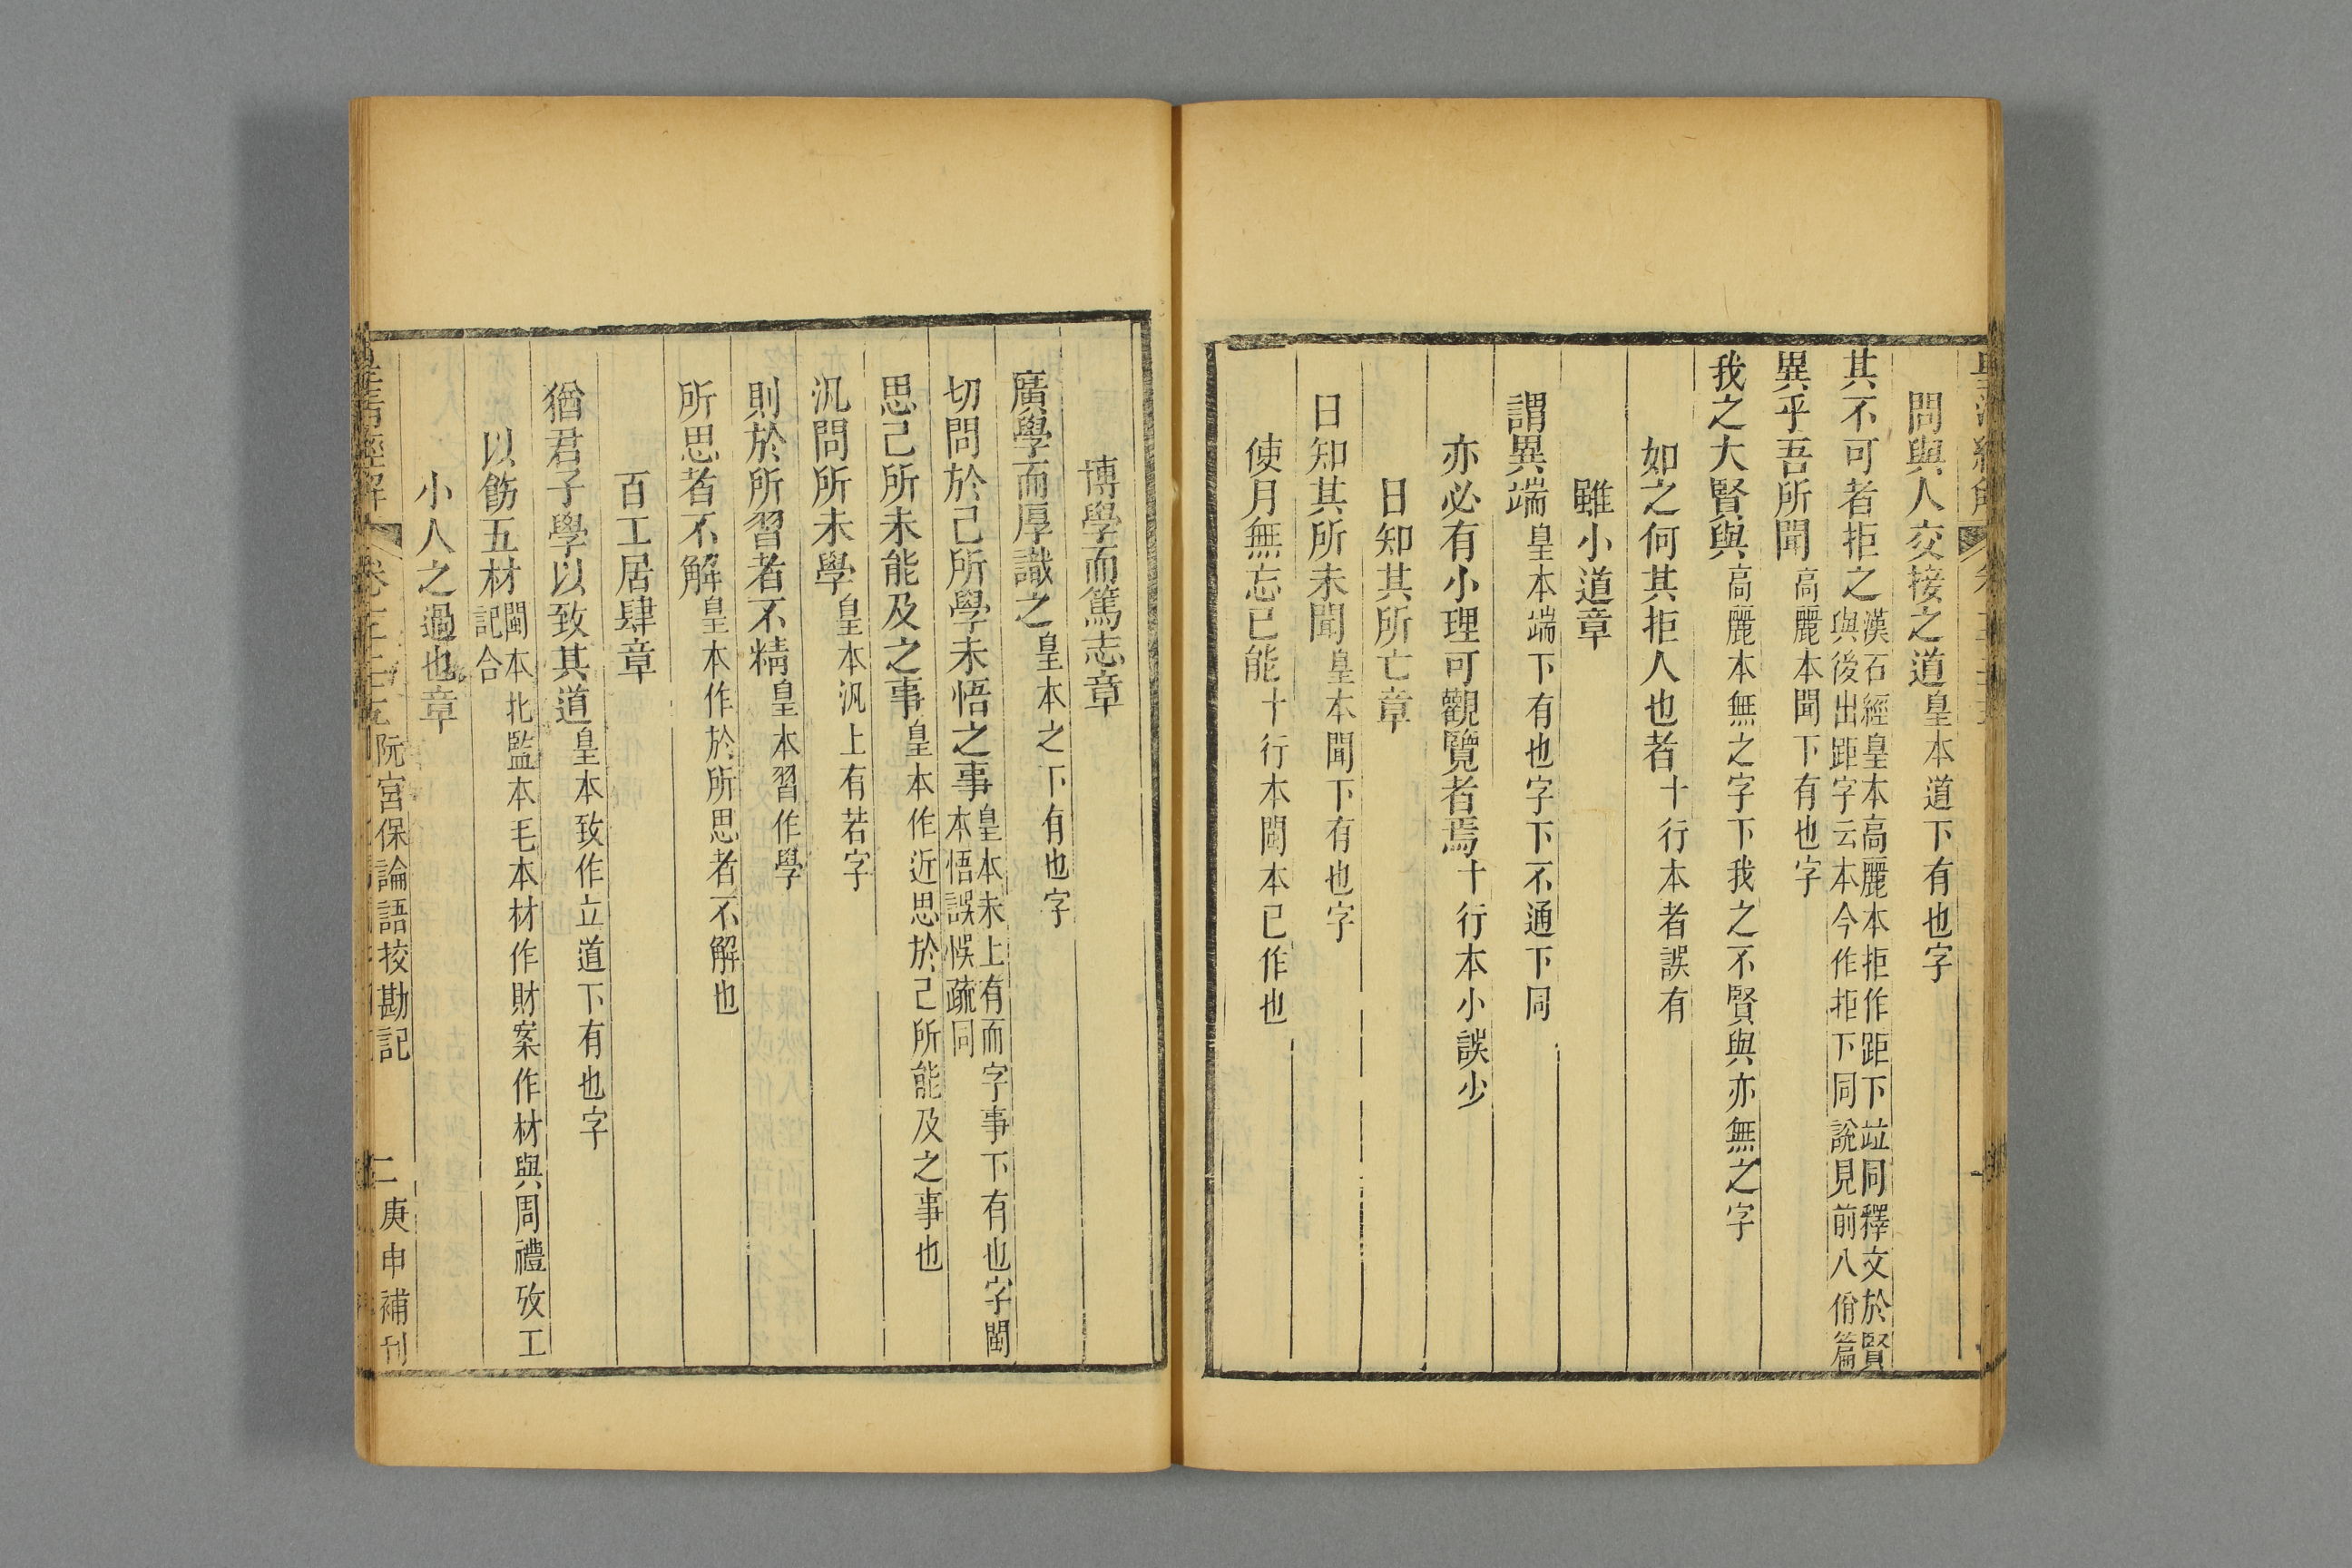 問與人交接之道皇本道下有也字
其不可者拒之漢石經皇本高麗本拒作距下竝同釋文於賢
與後出距字云本今作拒下同說見前八佾篇
異乎吾所聞高麗本聞下有也字
我之大賢與高麗本無之字下我之不賢與亦無之字
如之何其拒人也者十行本者誤有
雖小道章
謂異端皇本端下有也字下不通下同
亦必有小理可觀覽者焉十行本小誤少
日知其所亡章
日知其所未聞皇本聞下有也字
使月無忘已能十行本閩本已作也
博學而篤志章
廣學而厚識之皇本之下有也字
切問於己所學未悟之事皇本未上有而字事下有也字閩
本悟誤悮疏同
思己所未能及之事皇本作近思於己所能及之事也
汎問所未學皇本汎上有若字
則於所習者不精皇本習作學
所思者不解皇本作於所思者不解也
百工居肆章
猶君子學以致其道皇本致作立道下有也字
以飭五材閩本北監本毛本材作財案作材與周禮攷工
記合
小人之過也章
皇清經解 阮宮保論語挍勘記 二 庚申補刊